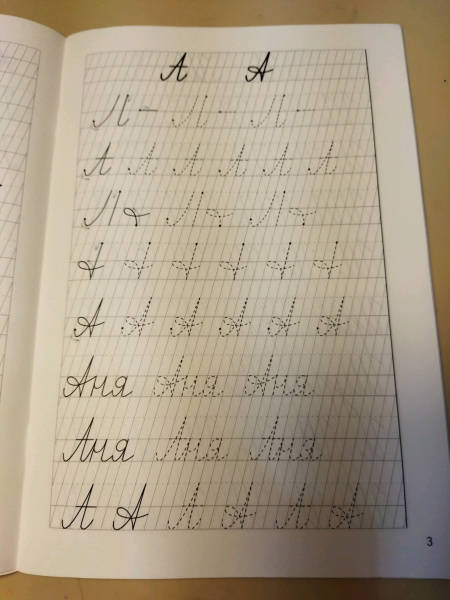 А А
Л – Л – Л –
А А А А А А
Л Л Л
А А А А А А
Аня Аня Аня
Аня Аня Аня
А А А А А А
3